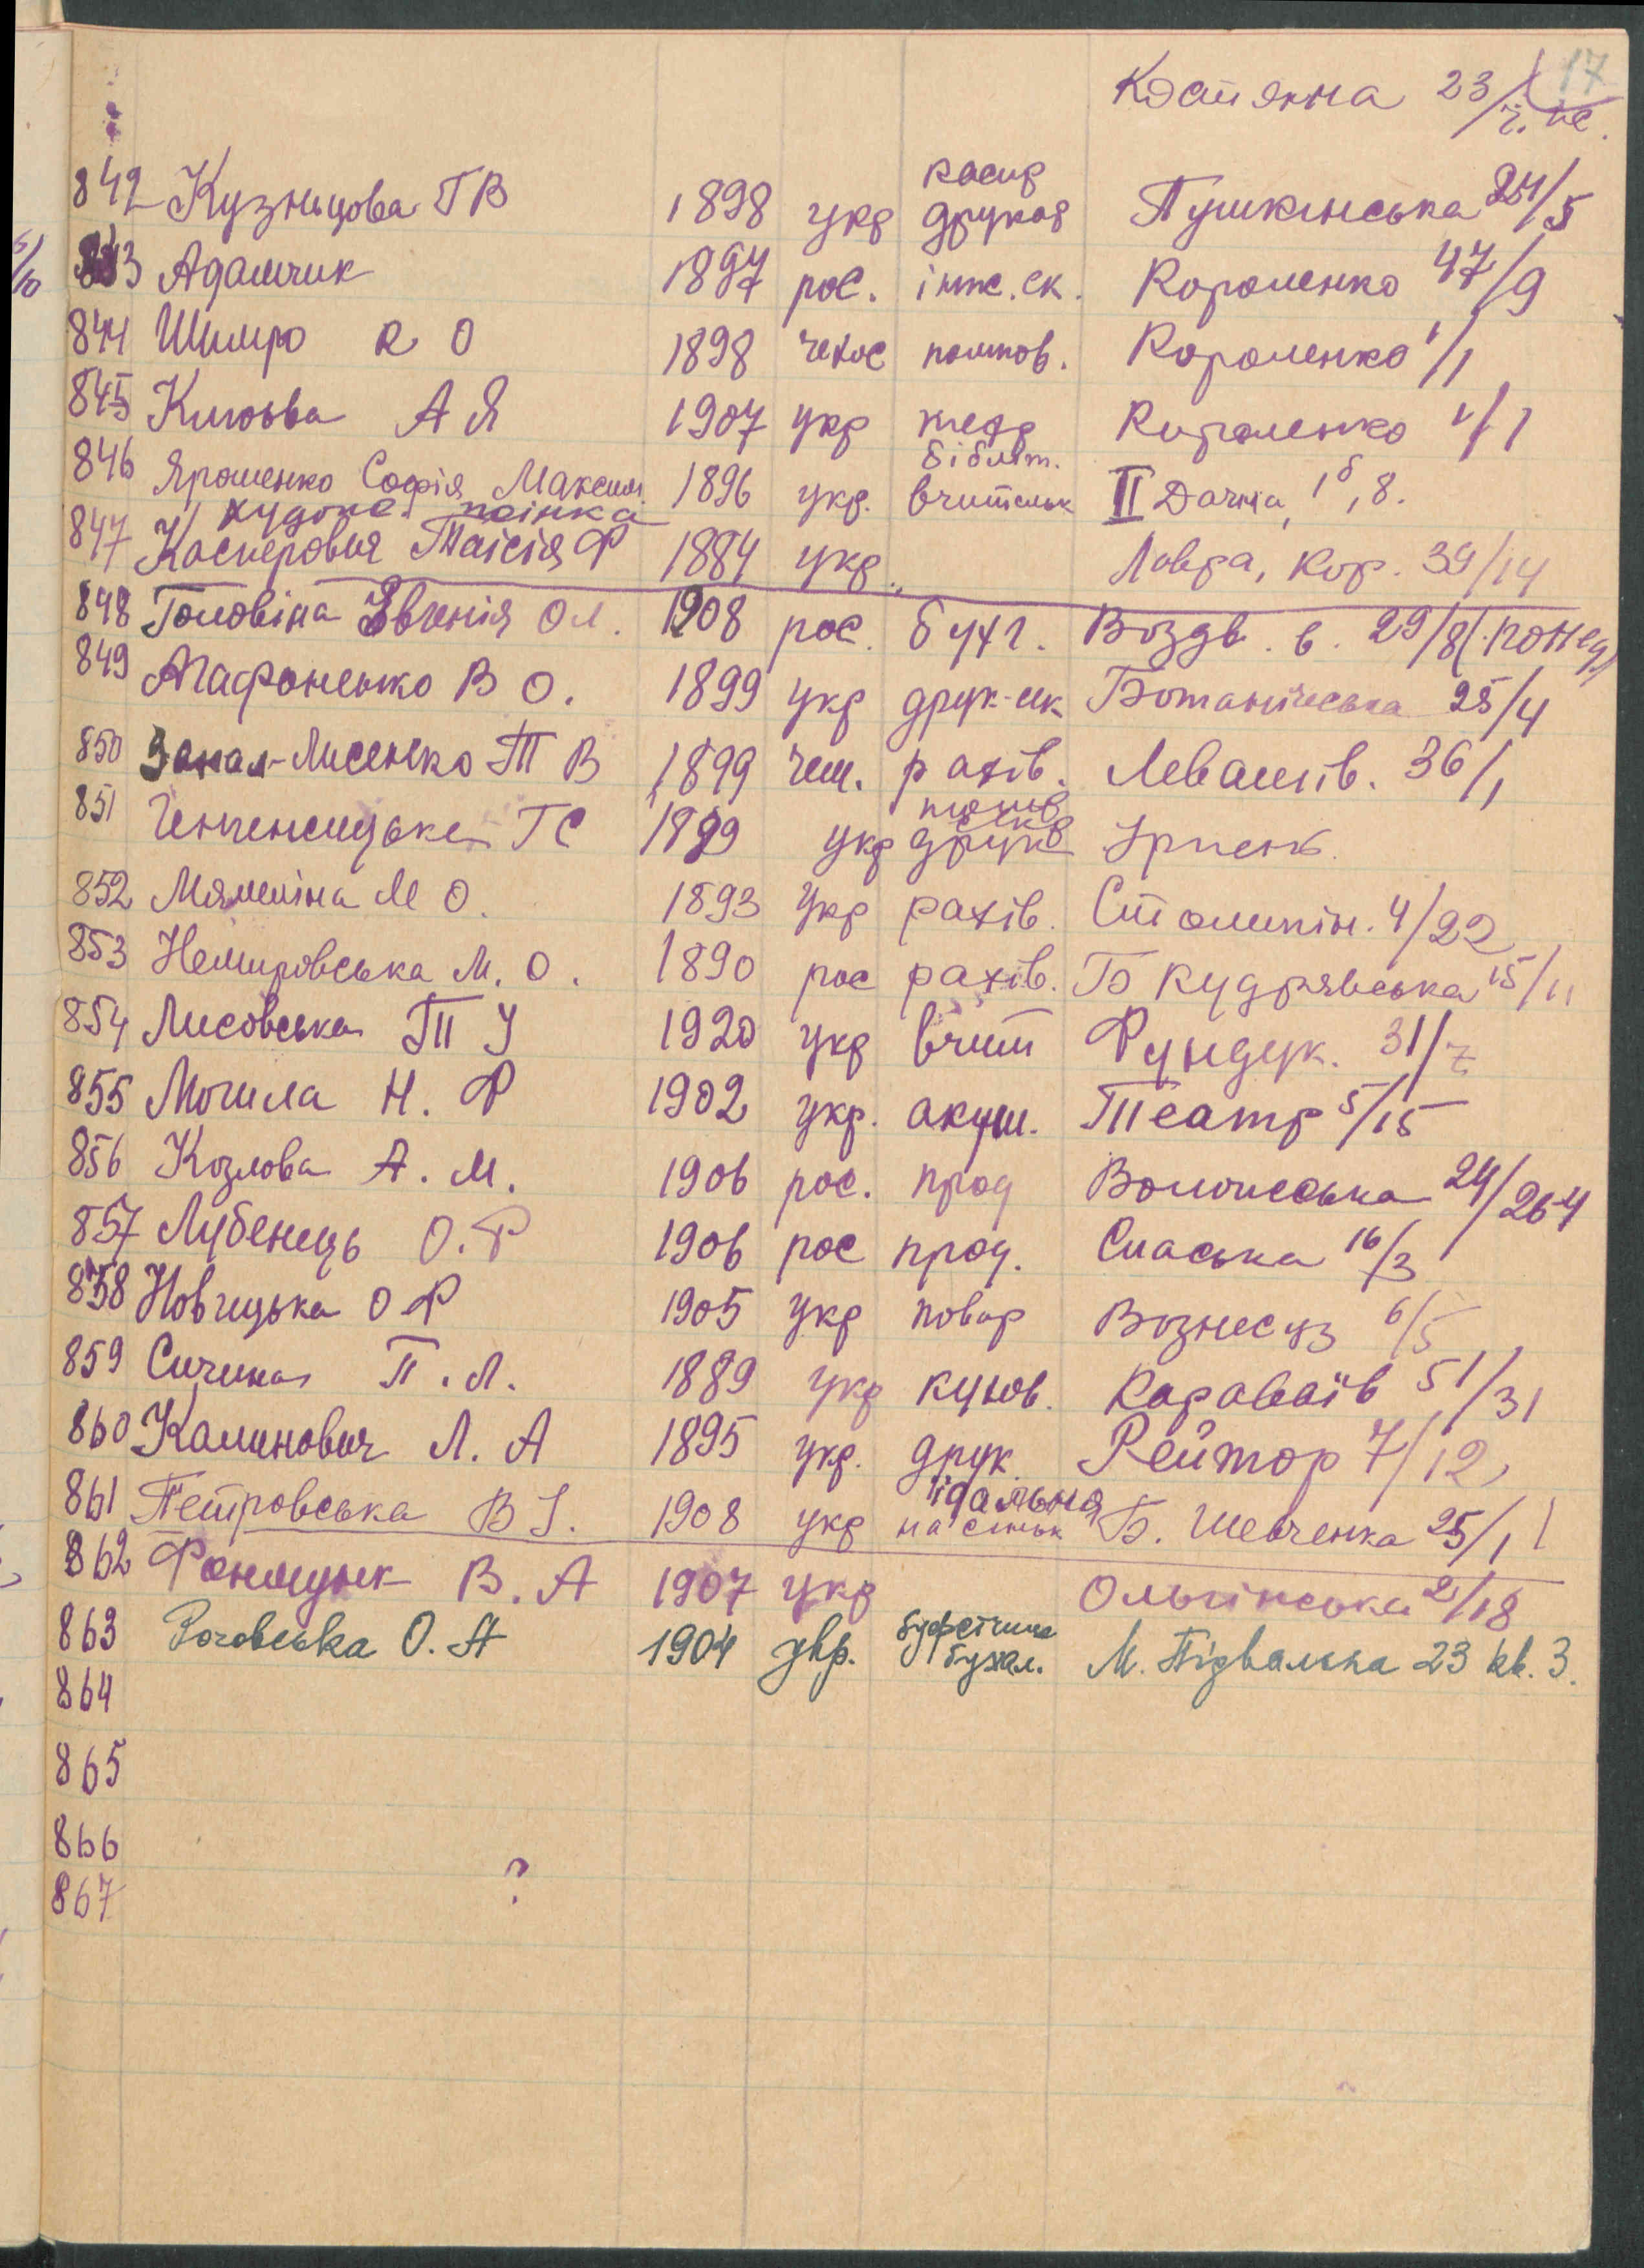 17
23/
842 Кузнецова Г В 1898 укр касир друкар Пушкінська 24/5
843 Адамчик 1897 рос. інж. ек. Короленко 47/9
844 О 1898 чехос Короленко 1/1
845 А Я 1907 укр Короленко 1/1
846 Ярошенко Софія Максим. 1896 укр. бібліот. вчительк II Дачна, 1б, 8.
847 Касперович Таісія Ф 1884 укр. Лавра, кор. 39/14
848 Головіна Євгенія Ол. 1908 рос. бухг. Воздв. в. 29/8 (понед)
849 Агафоненко В О. 1899 укр друк-ик Ботанічеська 25/4
850 Лисенко Т В 1899 рахів. Левашів. 36/1
851 Г С 1899 укр друк Ірпень
852 М О. 1893 укр рахів. Столипін. 4/22
853 Немировська М. О. 1890 рос рахів. Б Кудрявська 15/11
854 Лисовська Т У 1920 укр вчит Фундук. 31/7
855 Могила Н. Ф 1902 укр. акуш. Театр 5/15
856 Козлова А. М. 1906 рос. прод Волоиська 24/264
857 Лубенець О. Р 1906 рос прод. Спаська 16/3
858 Новицька О Ф 1905 укр повар Вознес уз 6/5
859 П. Л. 1889 укр кухов. Караваїв 51/31
860 Калинович Л. А 1895 укр. друк. Рейтор 7/12
861 Петровська В І. 1908 укр їдальня Б. Шевченка 25/11
862 В. А 1907 укр Ольгінська 2/18
863 Роговська О. А 1904 укр. бухгал. М. Підвальна 23 кв. 3.
864
865
866
867 ?